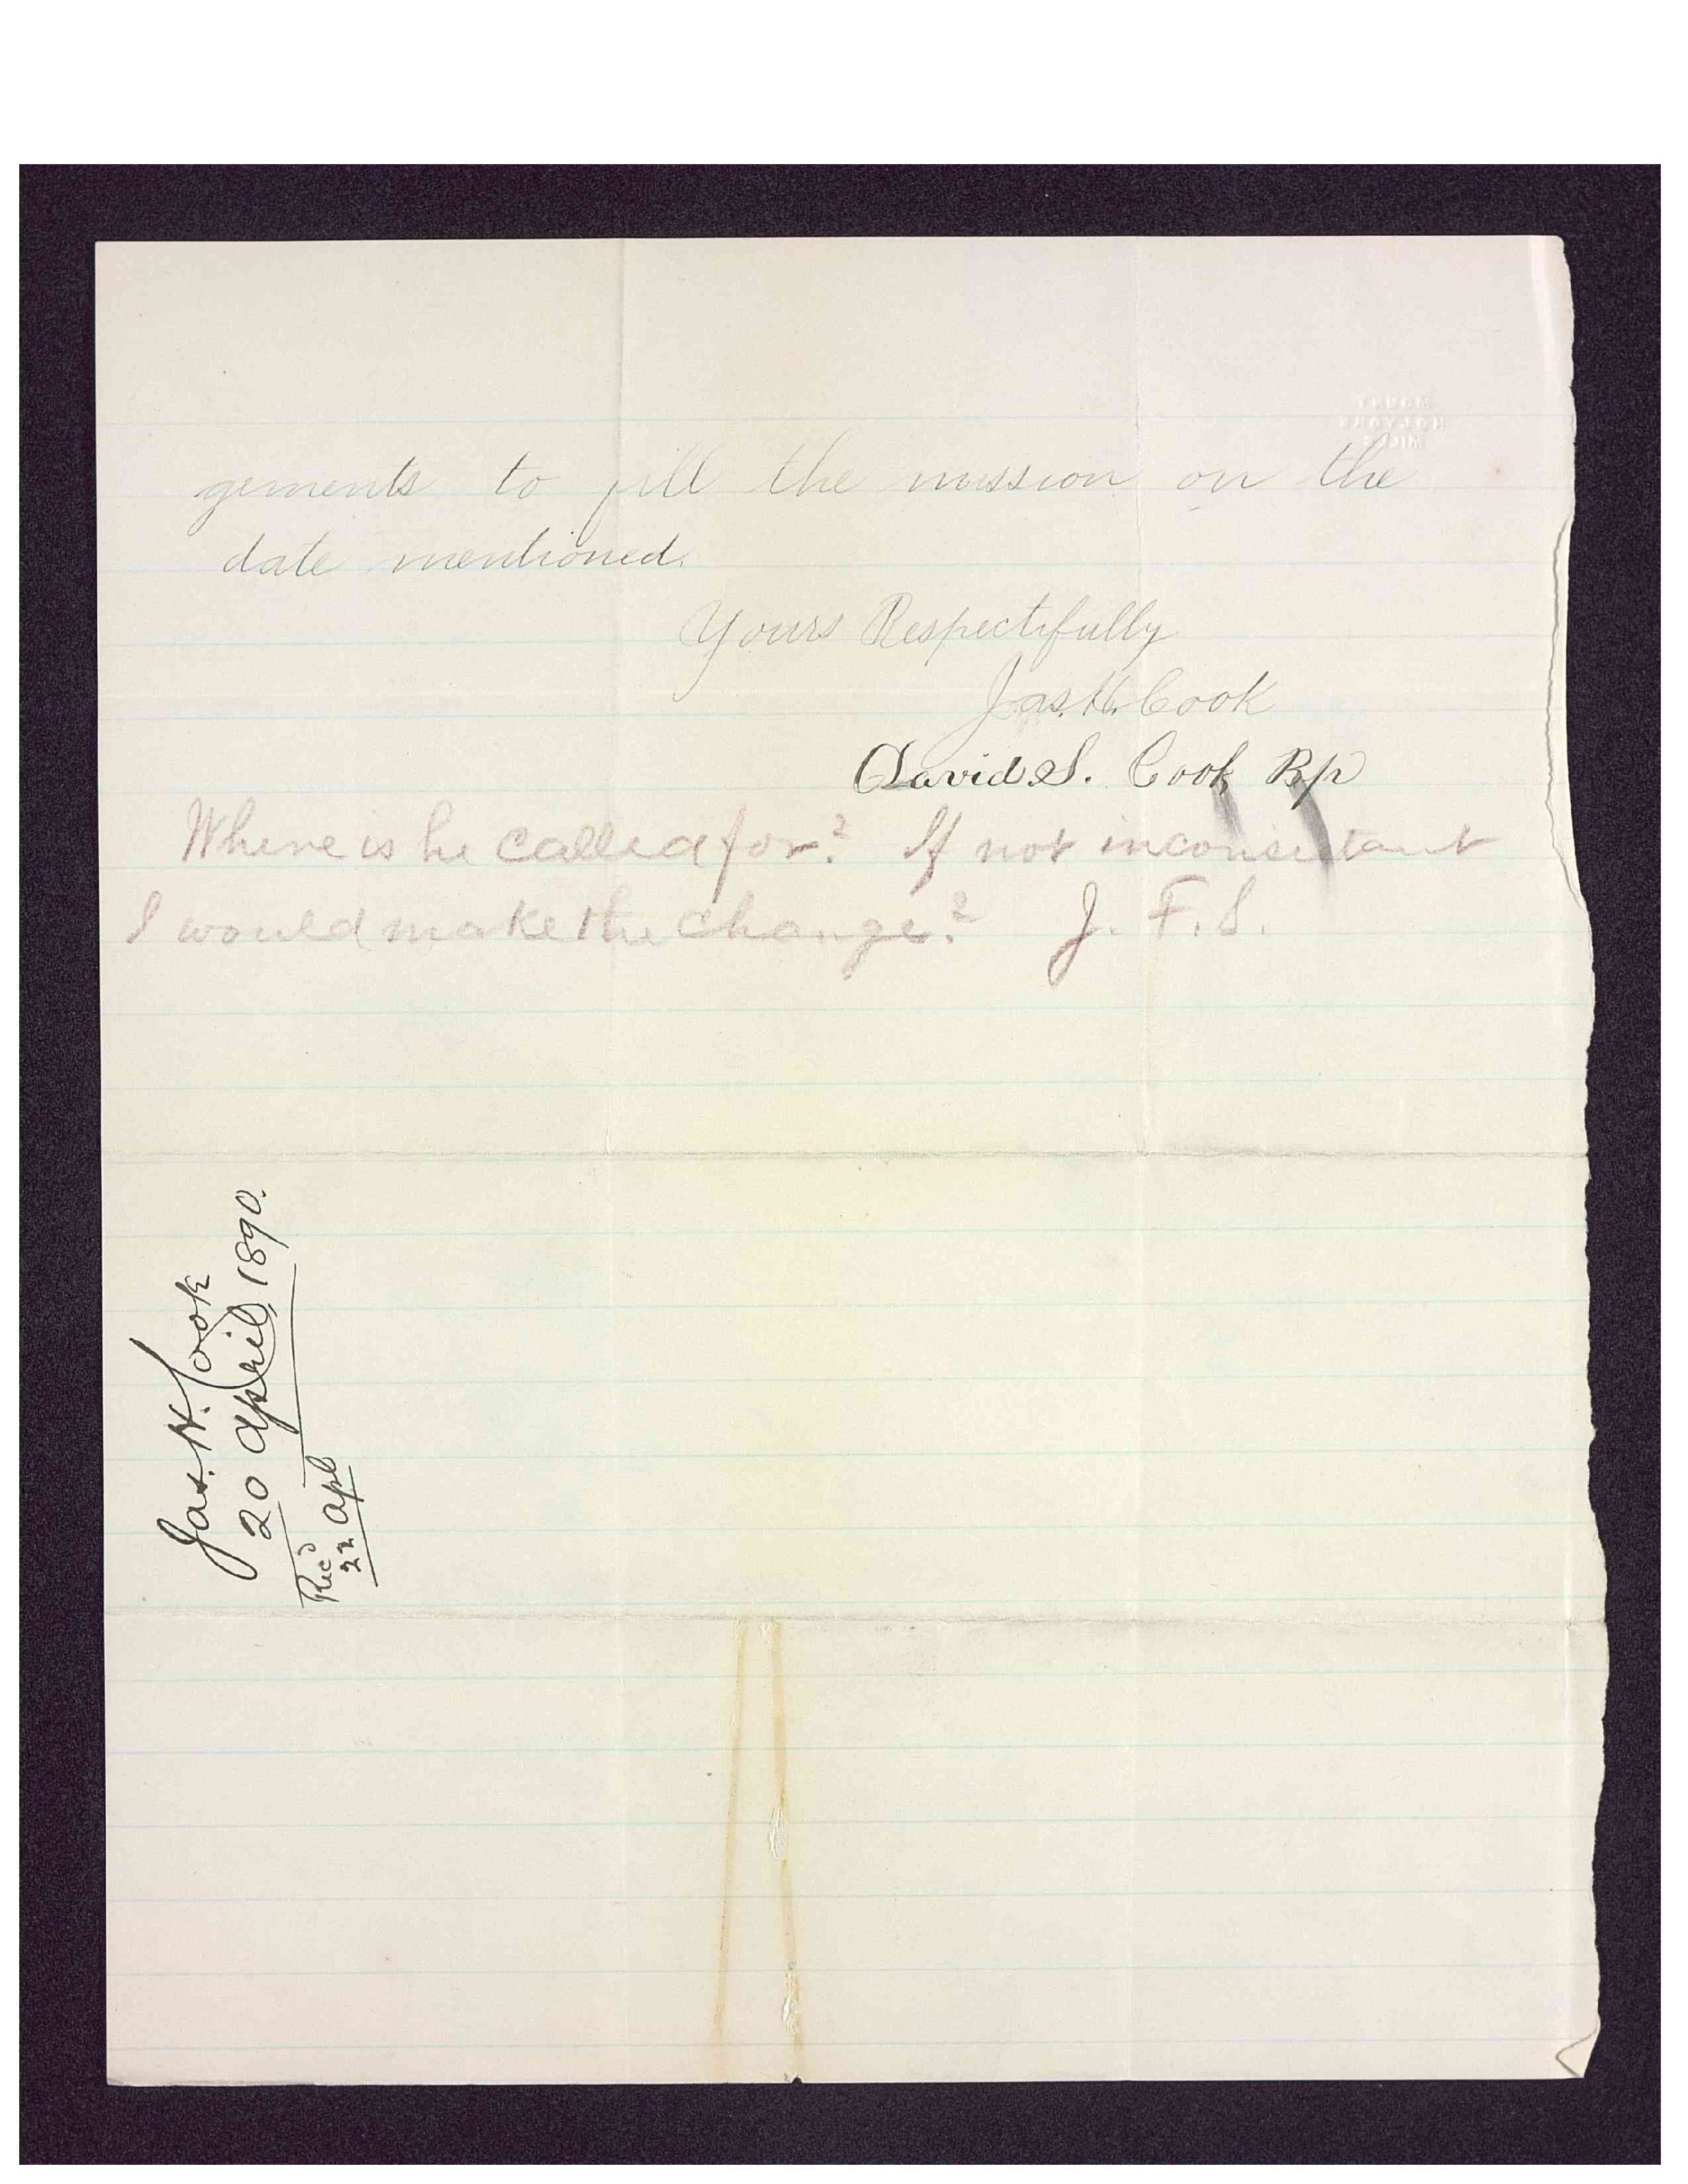 MOUNT
HOLYOKE
MILLS
gements to fill the mission on the
date mentioned.
Yours Respectifully
Jas. H. Cook
David. S. Cook Bp
Where is he called for? If not inconsistant
I would make the change? J. F. S.
Jas. H. Cook
20 April, 1890.
Rec'd
22 Apl